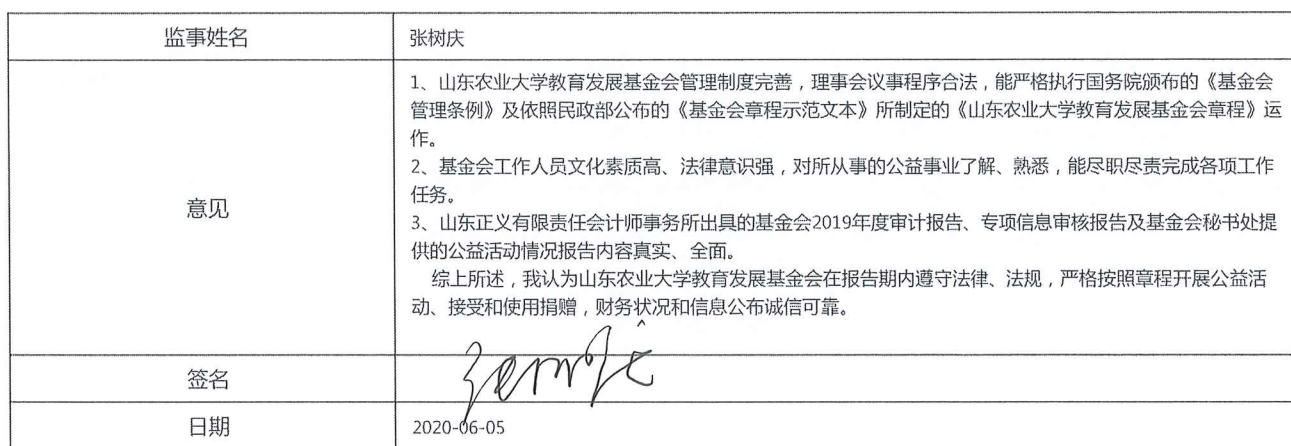 监事姓名
张树庆
意见
1、山东农业大学教育发展基金会管理制度完善，理事会议事程序合法，能严格执行国务院颁布的《基金会
管理条例》及依照民政部公布的《基金会章程示范文本》所制定的《山东农业大学教育发展基金会章程》运
作。
2、基金会工作人员文化素质高、法律意识强，对所从事的公益事业了解、熟悉，能尽职尽责完成各项工作
任务。
3、山东正义有限责任会计师事务所出具的基金会2019年度审计报告、专项信息审核报告及基金会秘书处提
供的公益活动情况报告内容真实、全面。
综上所述，我认为山东农业大学教育发展基金会在报告期内遵守法律、法规，严格按照章程开展公益活
动、接受和使用捐赠，财务状况和信息公布诚信可靠。
签名
张树庆
日期
2020-06-05